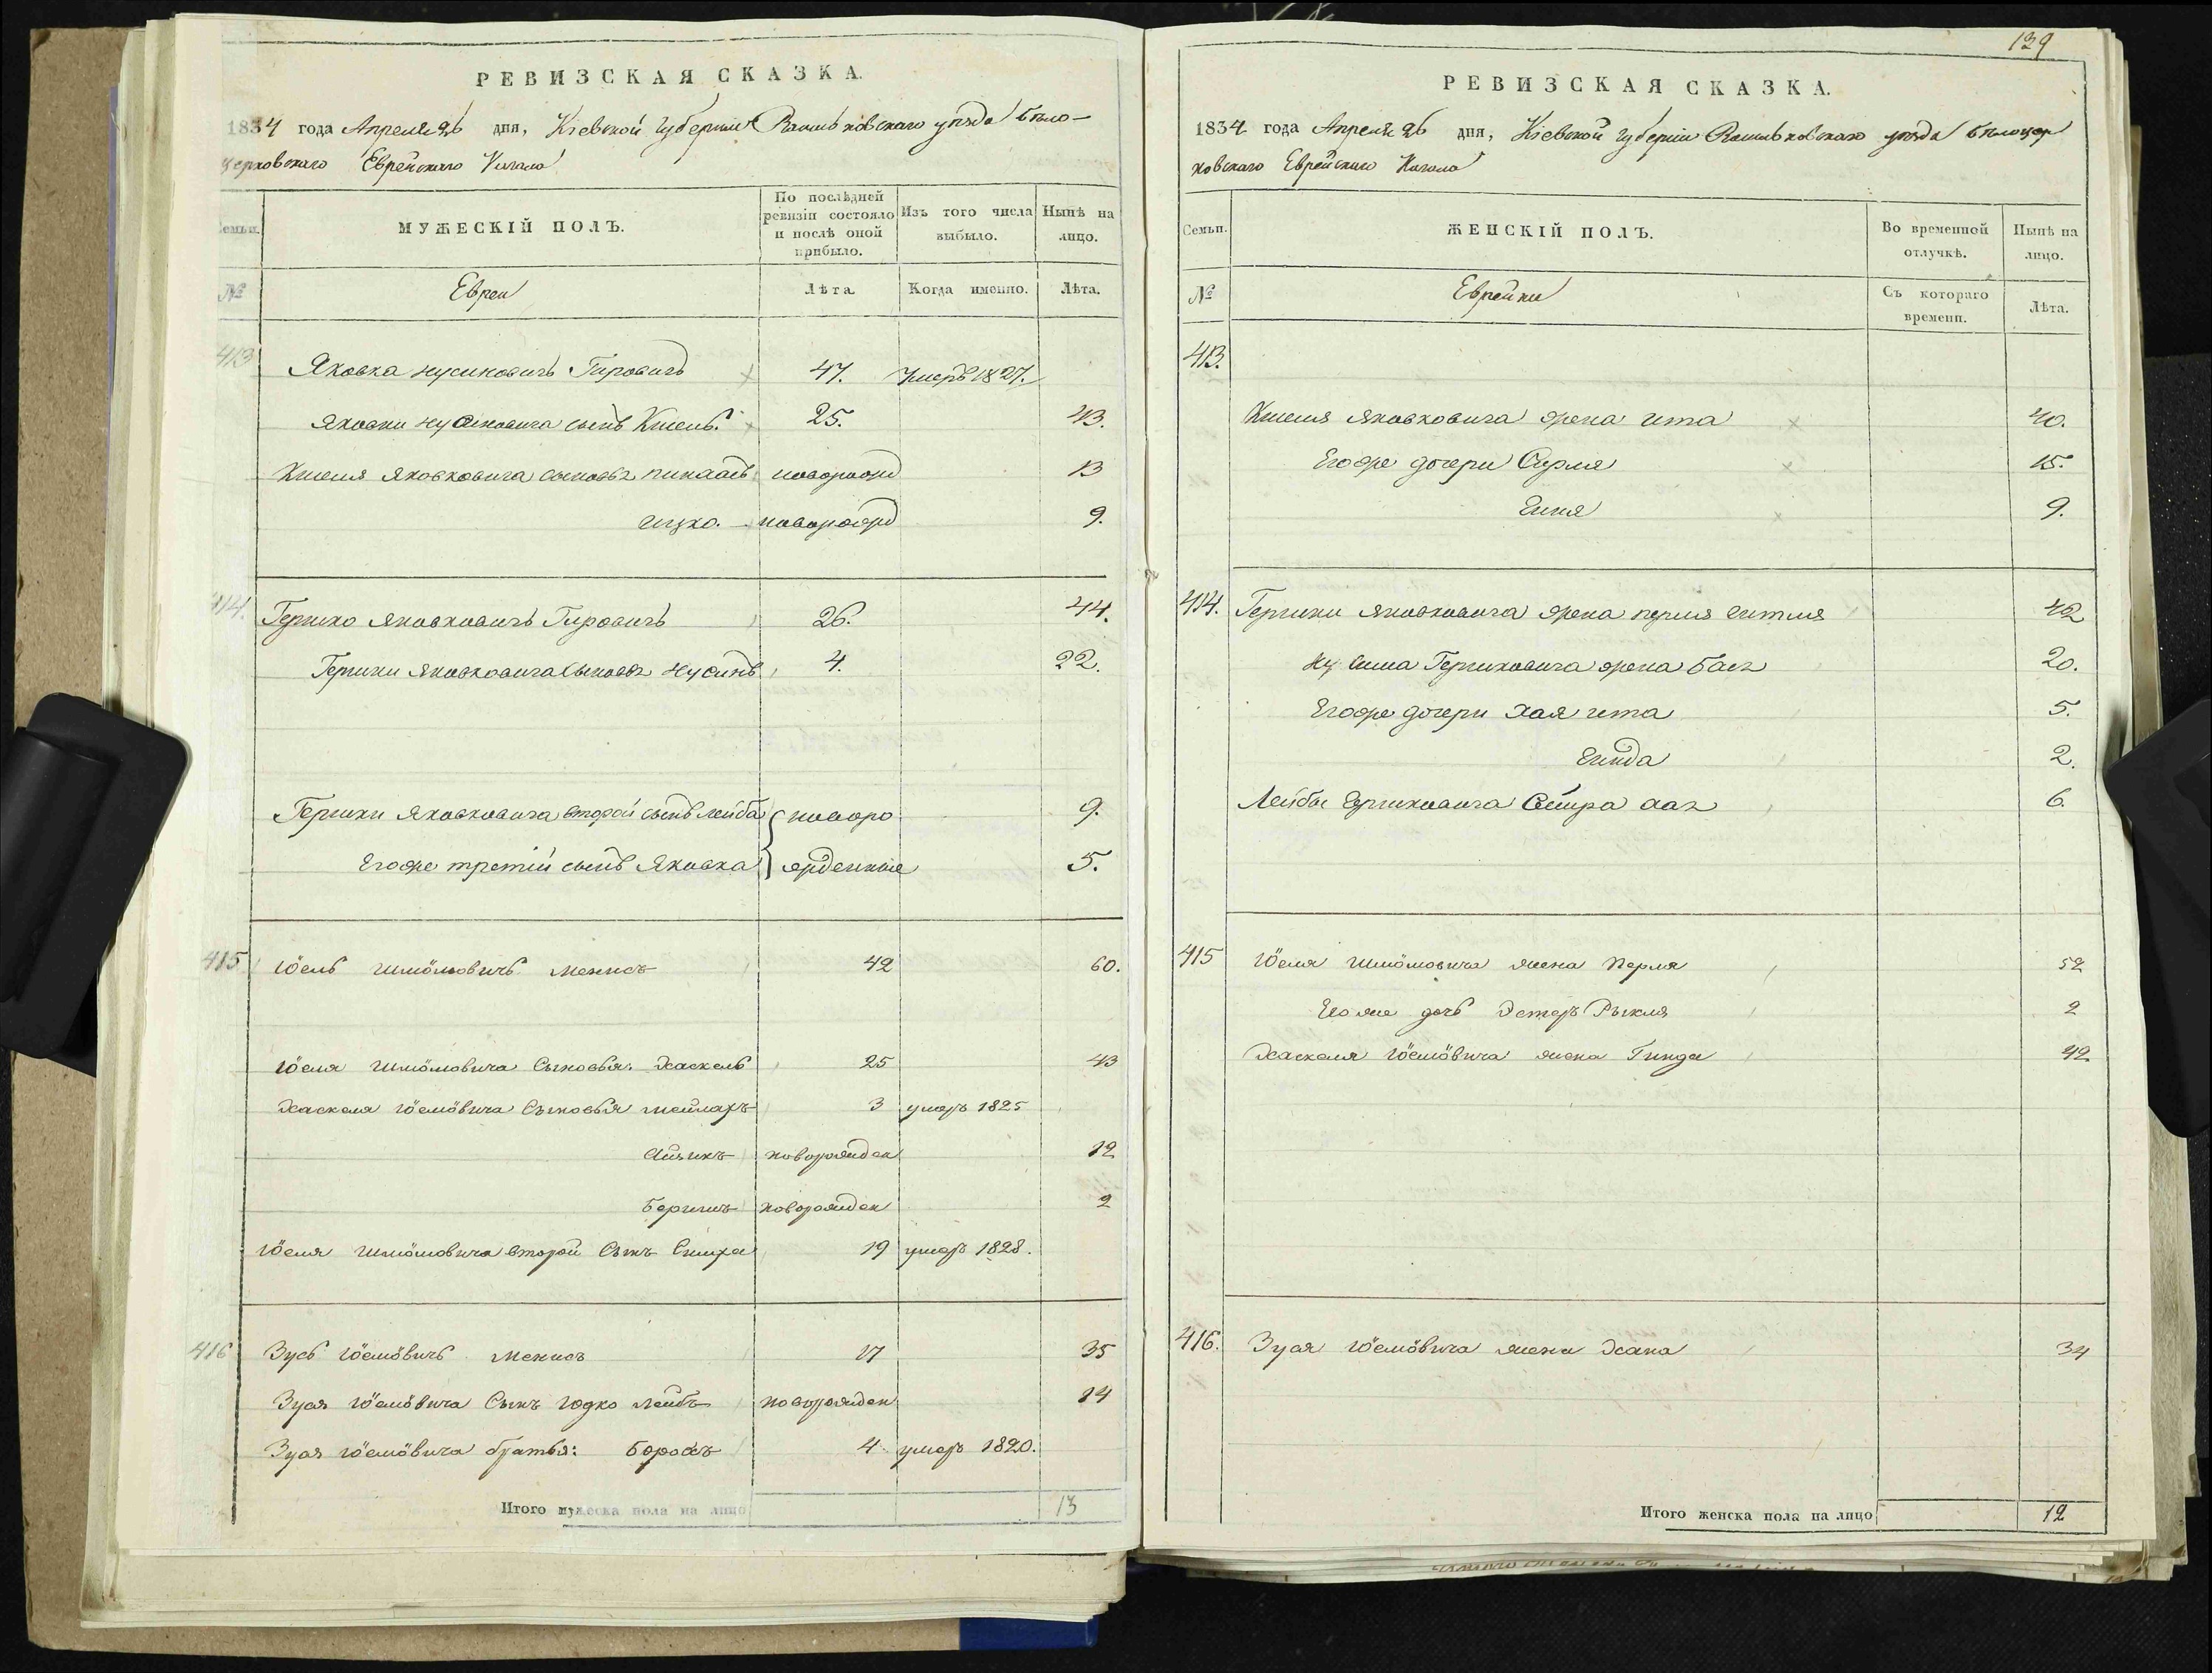 РЕВИЗСКАЯ СКАЗКА.
1834 года Апреля 26 дня, Кіевской Губерніи Васильковскаго уѣзда бѣло-
церковскаго Еврейскаго Кагала
Семьи.
МУЖЕСКІЙ ПОЛЪ.
По послѣдней ревизіи состояло и послѣ оной прибыло.
Изъ того числа выбыло.
Нынѣ на лицо.
№
Евреи
Лѣта
Когда именно.
Лѣта.
413 Яковка нусиновичъ Гировичъ 47. Умеръ 1827.
Яковки нусиновича сынъ Кисель. 25. 43.
Киселя Яковковича сыновья пинхасъ новорожд 13
ицко. новорожд 9.
414. Гершко Яковковичъ Гировичъ 26. 44.
Гершки Яковковича сыновья нусинъ 4. 22.
Гершки Яковковича второй сынъ лейба новоро 9.
Егоже третій сынъ Яковка жденные 5.
415 Іоель Шмойловичъ 42 60.
Іоеля Шмойловича Сыновья: Хаскель 25 43
Хаскеля Іоелёвича Сыновья шейлахъ 3 умеръ 1825
Айзикъ новорожден 12
Бершинъ новорожден 2
Іоеля Шмойловича второй Сынъ Симха 19 умеръ 1828.
416 Зусь Іоелёвичъ 17 35
Зуся Іоелёвича Сынъ Юдко лейбъ новорожден 14
Зуся Іоелёвича братья: Борохъ 4 умеръ 1820.
Итого мужеска пола на лицо 13
139
РЕВИЗСКАЯ СКАЗКА.
1834 года Апреля 26 дня, Кіевской Губерніи Васильковскаго уѣзда бѣлоцер
ковскаго Еврейскаго Кагала
Семьи.
ЖЕНСКІЙ ПОЛЪ.
Во временной отлучкѣ.
Нынѣ на лицо.
№
Еврейки
Съ котораго времени.
Лѣта.
413.
Киселя Яковковича жена ита 40.
Егоже дочери Сурля 15.
Ения 9.
414. Гершки Яковковича жена перля гитля 42
нусина Гершковича жена бася 20.
Егоже дочери хая ита 5.
Гинда 2.
Лейбы Гершковича Сестра хая 6.
415 Іоеля Шмойловича жена Перля 52
Его же дочь Эстеръ Рыкля 2
Хаскеля Іоелёвича жена Гинда 42
416. Зуся Іоелёвича жена Хана 34
Итого женска пола на лицо 12